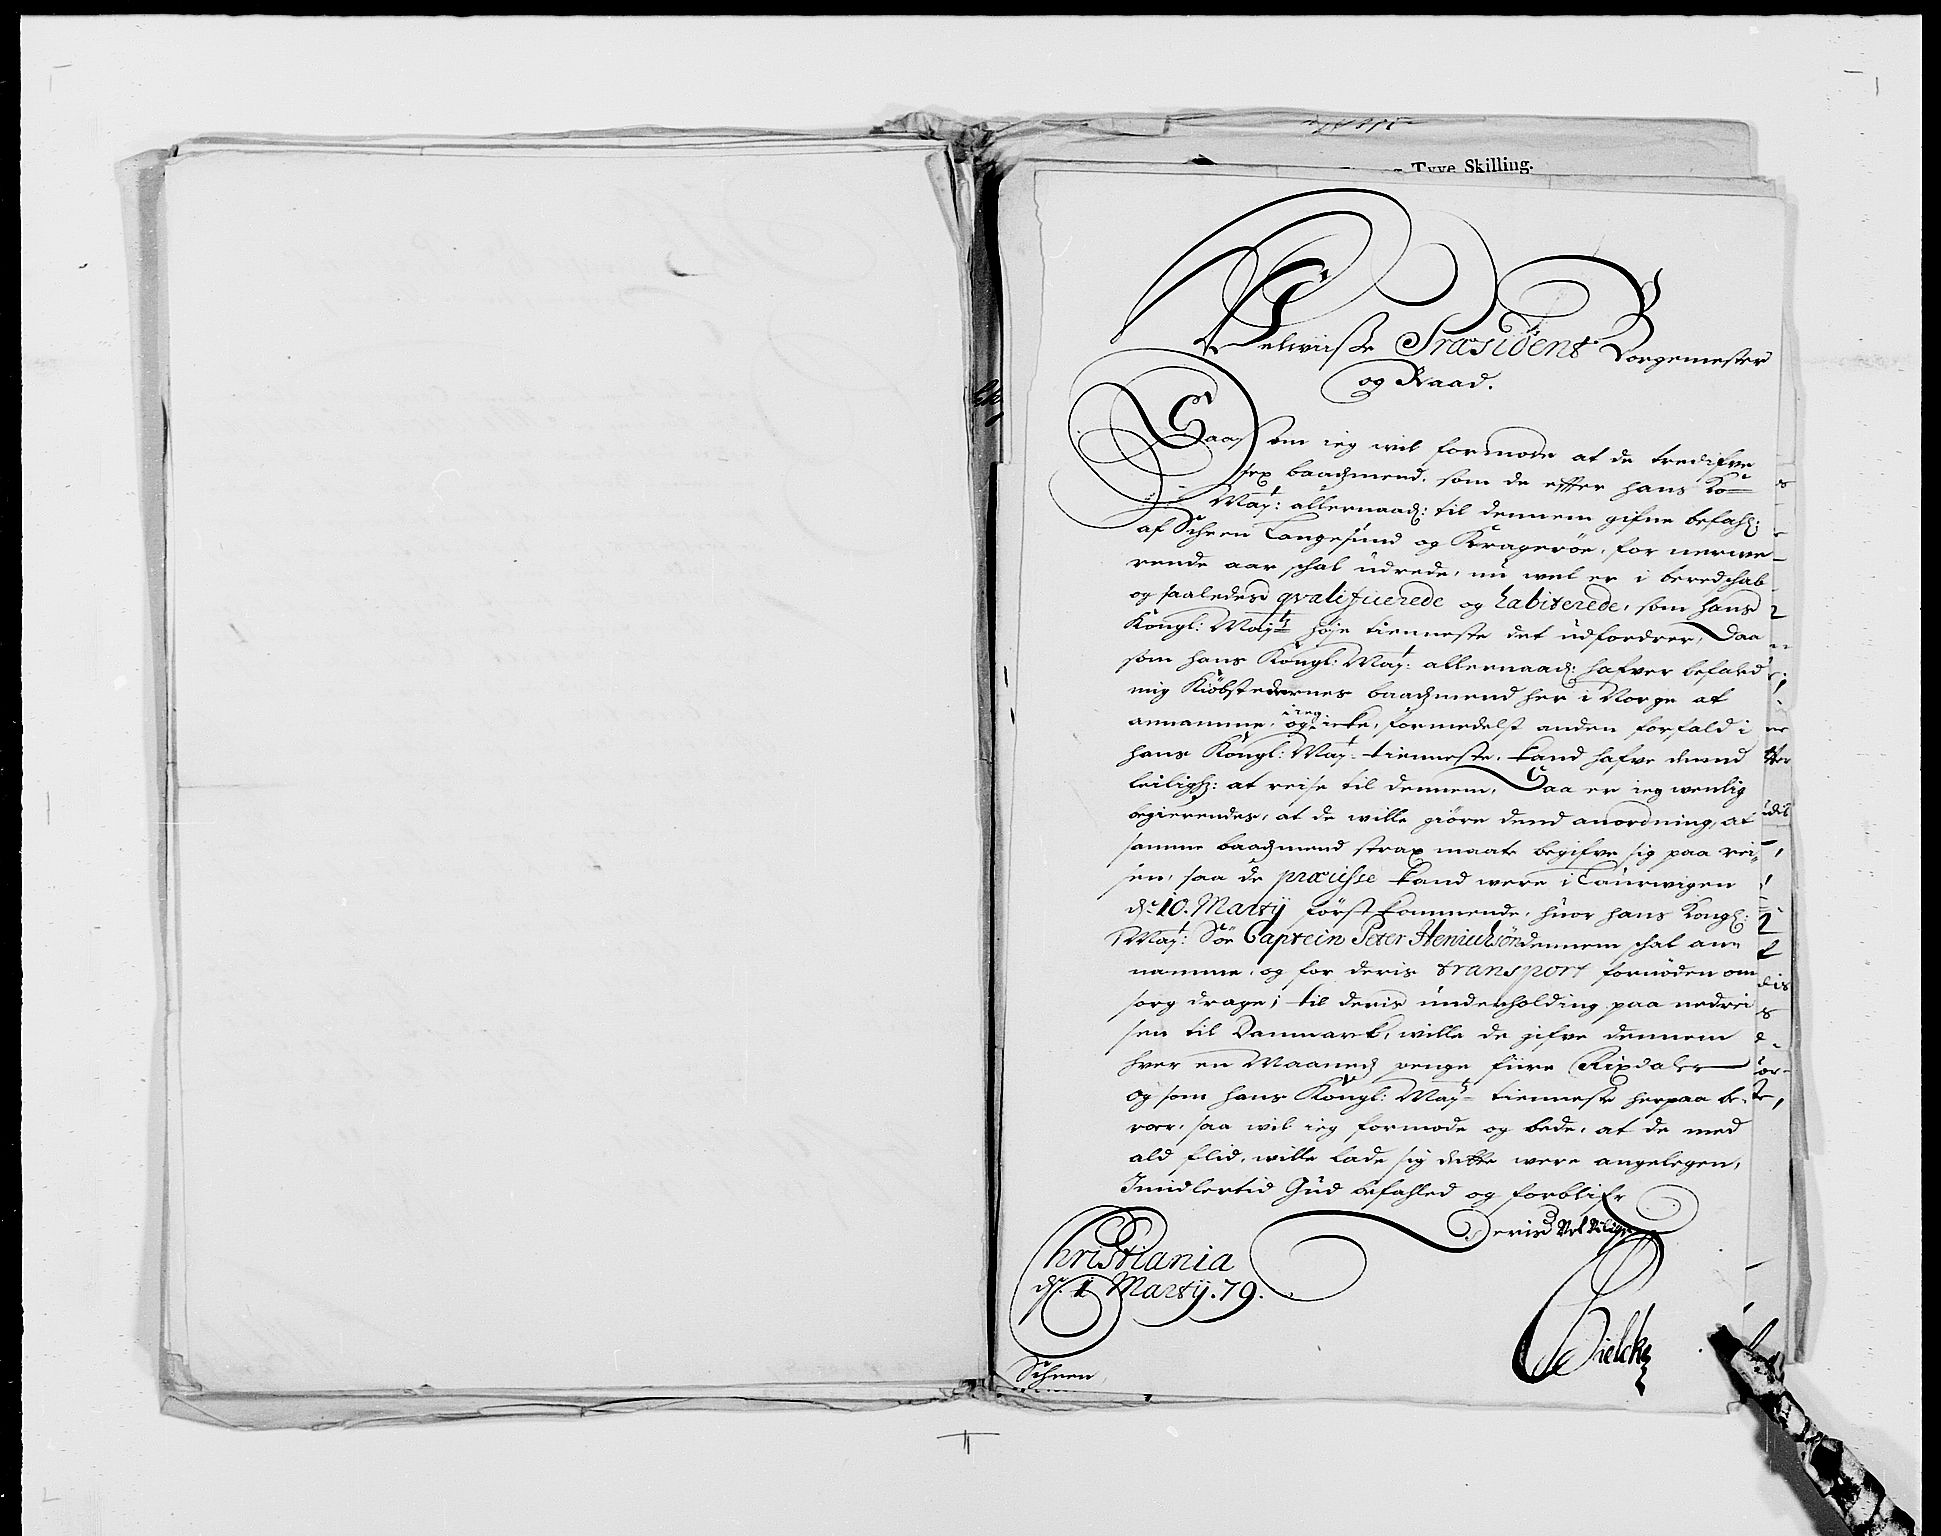 Tyve Skilling.
Velwiisse Præsident Borgemester
og Raad.
Saasom ieg wil formode at de tredifve
sex baadzmend, som de effter hans Ko
May:t allernaad: til dennem gifne befahl:
af Scheen Langesund og Kragerøe, for nerwe
rende aar schal udrede, nu wel er i beredschab
og saaledes qvalificerede og habiterede, som hans
Kongl: May:ts høje tienneste det udfordrer, Daa
som hans Kongl: May:t allernaad: hafver befaled
mig Kiøbstedernes baadzmend her i Norge at
annamme, og ieg icke, formedelst anden forfald i
hans Kongl: May:t tienneste, kand hafve dend
leilighd: at reise til dennem, Saa er ieg wenlig
begierendes, at de wille giøre dend anordning, at
samme baadzmend strax maate begifve sig paa rei,,
sen, saa de præcisse kand were i Laurwigen
d: 10. Martij først kommende, huor hans Kongl:
May:t Søe Captein Peter Henrichsøn dennem schal an,,
namme, og for deris transport fornøden om
sorg drage; til deris underholding paa nedrei
sen til Danmarck, wille de gifve dennem
hver en Maaned penge fiire Rixdaler
og som hans Kongl: May:ts tienneste herpaa be,,
roer, saa wil ieg formode og bede, at de med
ald flid, wille lade sig dette were angelegen,
Imidlertid Gud befahled og forblifr
Deris Velvilige
Christiania
d: 1 Martij. 79.
Bielcke
Scheen